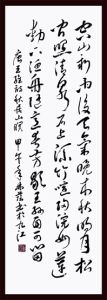 空山新雨後天氣晚来秋明月松
间照清泉石上流竹喧归浣女莲
動下渔舟随意春芳歇王孫自可留
唐王维诗秋居山暝 甲午年